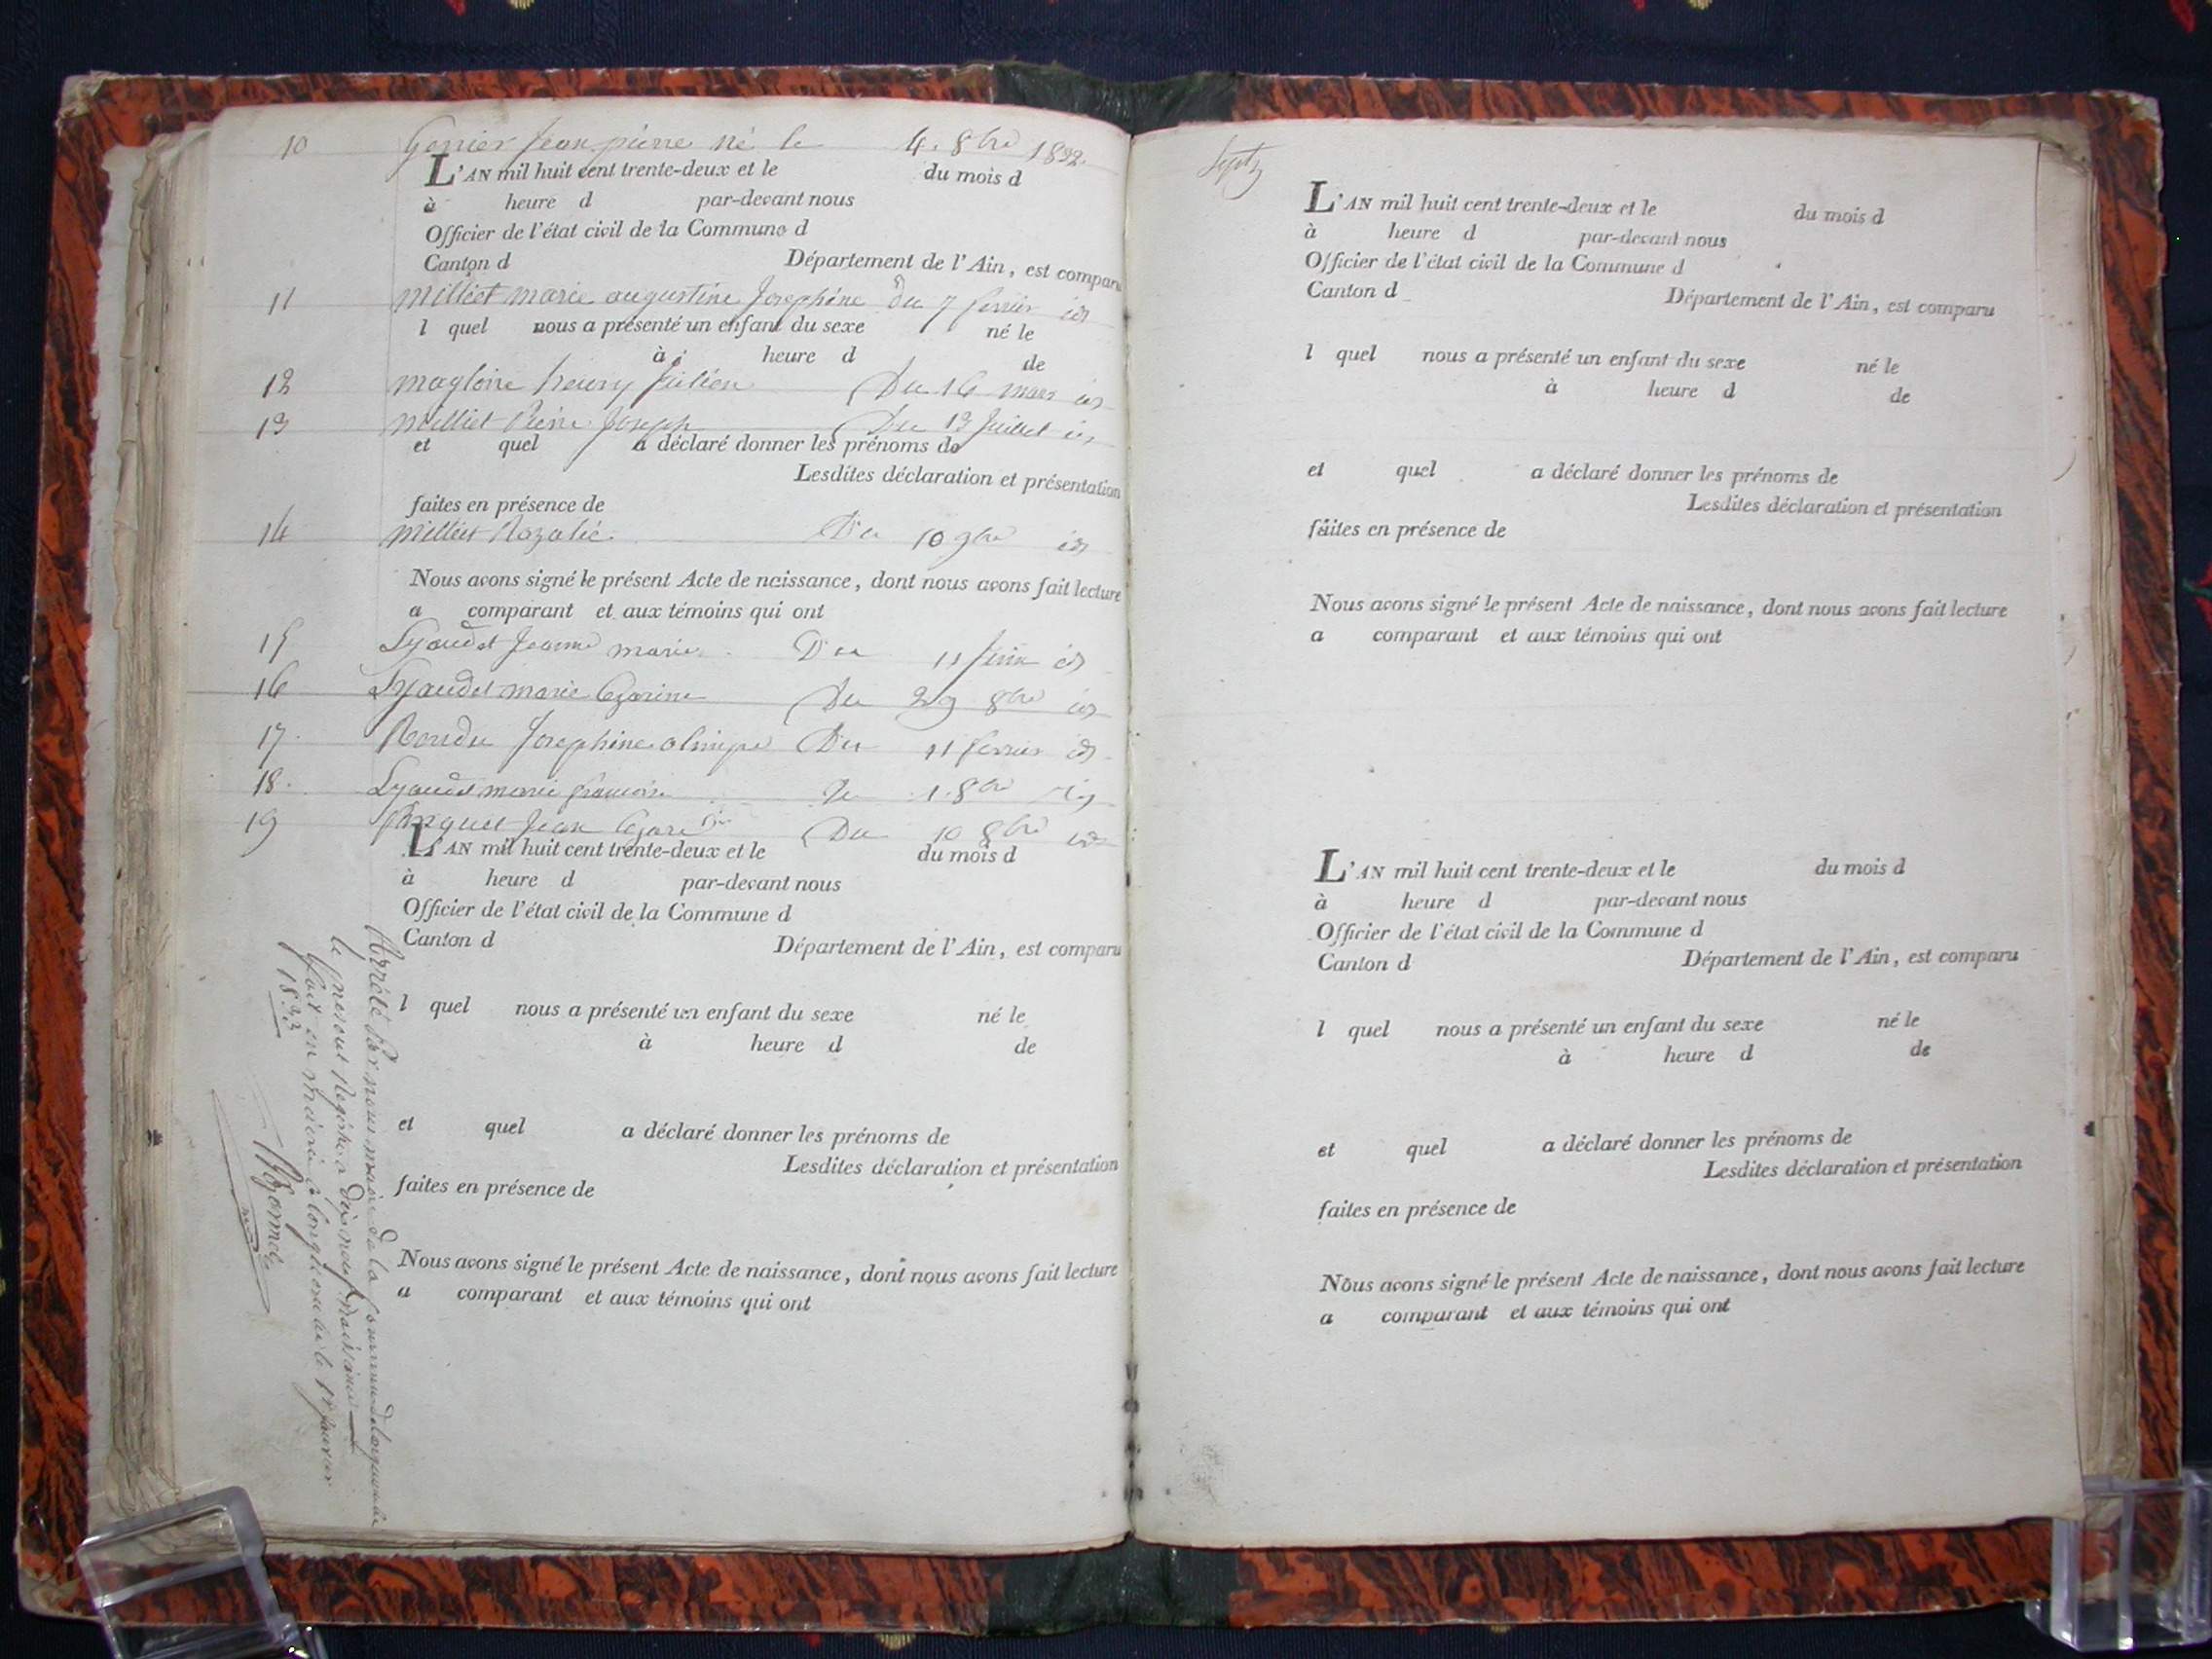 10 Gonier Jean pierre né le 4. 8bre 1832.
L'AN mil huit cent trente-deux et le du mois d
à heure d par-devant nous
Officier de l'état civil de la Commune d
Canton d Département de l'Ain, est comparu
11 Milliet marie augustine Josephine Du 7 fevrier id
l quel nous a présenté un enfant du sexe né le
à heure d de
12 magloire henry Julien Du 16 mars id
13 Milliet Pierre Joseph Du 13 Juillet id
et quel a déclaré donner les prénoms de
Lesdites déclaration et présentation
faites en présence de
14 Milliet Rozalie. Du 10 9bre id
Nous avons signé le présent Acte de naissance, dont nous avons fait lecture
a comparant et aux témoins qui ont
15 Lyaudet Jeanne marie. Du 11 id
16 Lyaudet marie Du 29 8bre id
17. Josephine olimpe Du 11 fevrier id
18. Lyaudet marie Du 1. 8bre id
19 Jean Du 10 8bre id
L'AN mil huit cent trente-deux et le du mois d
à heure d par-devant nous
Officier de l'état civil de la Commune d
Canton d Département de l'Ain, est comparu
l quel nous a présenté un enfant du sexe né le
à heure d de
et quel a déclaré donner les prénoms de
Lesdites déclaration et présentation
faites en présence de
Nous avons signé le présent Acte de naissance, dont nous avons fait lecture
a comparant et aux témoins qui ont
Arrêté Par nous maire de la Commune de
le present Registre a dix neuf naissances
fait en mairie à le 1er janvier
1833
Sept
L'AN mil huit cent trente-deux et le du mois d
à heure d par-devant nous
Officier de l'état civil de la Commune d
Canton d Département de l'Ain, est comparu
l quel nous a présenté un enfant du sexe né le
à heure d de
et quel a déclaré donner les prénoms de
Lesdites déclaration et présentation
faites en présence de
Nous avons signé le présent Acte de naissance, dont nous avons fait lecture
a comparant et aux témoins qui ont
L'AN mil huit cent trente-deux et le du mois d
à heure d par-devant nous
Officier de l'état civil de la Commune d
Canton d Département de l'Ain, est comparu
l quel nous a présenté un enfant du sexe né le
à heure d de
et quel a déclaré donner les prénoms de
Lesdites déclaration et présentation
faites en présence de
Nous avons signé le présent Acte de naissance, dont nous avons fait lecture
a comparant et aux témoins qui ont